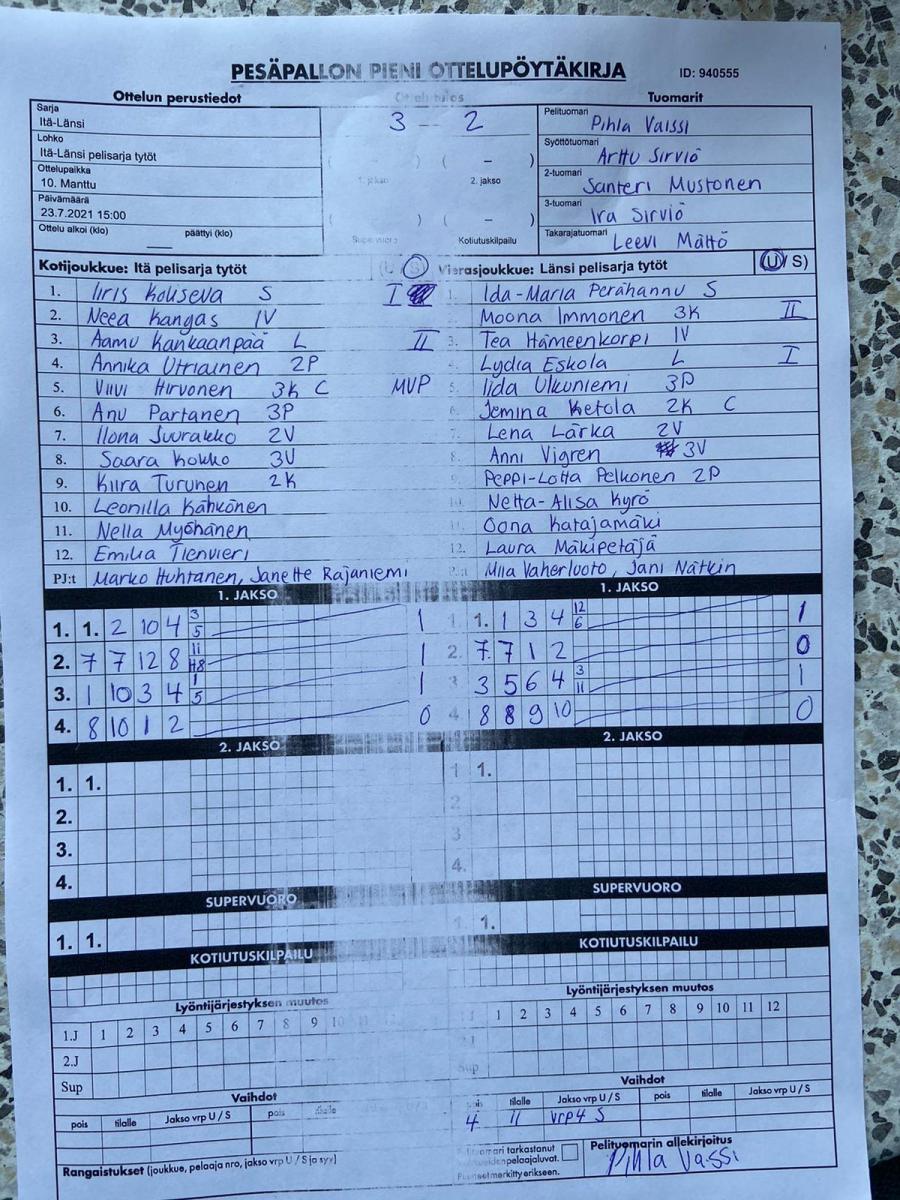 PESÄPALLON PIENI OTTELUPÖYTÄKIRJA ID: 940555
Ottelun perustiedot Ottelutulos Tuomarit
Sarja
Itä-Länsi
Lohko
Itä-Länsi pelisarja tytöt
Ottelupaikka
10. Manttu
Päivämäärä
23.7.2021 15:00
Ottelu alkoi (klo) päättyi (klo)
3 - 2
( - ) ( - )
1. jakso 2. jakso
( ) ( - )
Supervuoro Kotiutuskilpailu
Pelituomari Pihla Vaissi
Syöttötuomari Arttu Sirviö
2-tuomari Santeri Mustonen
3-tuomari Ira Sirviö
Takarajatuomari Leevi Mättö
Kotijoukkue: Itä pelisarja tytöt (U / S)
1. Iiris Kouseva S I
2. Neea Kangas 1V
3. Aamu Kankaanpää L II
4. Annika Utriainen 2P
5. Viivi Hirvonen 3K C MVP
6. Anu Partanen 3P
7. Ilona Juurakko 2V
8. Saara Kokko 3V
9. Kiira Turunen 2K
10. Leonilla Kähkönen
11. Nella Myöhänen
12. Emilia Tienvieri
PJ:t Marko Huhtanen, Janette Rajaniemi
Vierasjoukkue: Länsi pelisarja tytöt (U / S)
1. Ida-Maria Perähannu S
Moona Immonen 3K II
3. Tea Hämeenkorpi 1V
Lydia Eskola L I
5. Iida Ulkuniemi 3P
6. Jemina Ketola 2K C
7. Lena Lärka 2V
8. Anni Vigren 3V
9. Peppi-Lotta Pelkonen 2P
10. Netta-Alisa Kyrö
11. Oona Katajamäki
12. Laura Mäkipetäjä
Miia Vaherluoto, Jani Nätkin
1. JAKSO
1. 1. 2 10 4 3 5 1
2. 7 7 12 8 11 1
3. 1 10 3 4 1 5 1
4. 8 10 1 2 0
1. JAKSO
1. 1. 1 3 4 12 6 1
2. 7. 7 1 2 0
3 3 5 6 4 3 11 1
4. 8 8 9 10 0
2. JAKSO
1. 1.
2.
3.
4.
2. JAKSO
1 1.
2
3
4.
SUPERVUORO
1. 1.
SUPERVUORO
1. 1.
KOTIUTUSKILPAILU
KOTIUTUSKILPAILU
Lyöntijärjestyksen muutos
1.J 1 2 3 4 5 6 7 8 9 10 11 12
2.J
Sup
Lyöntijärjestyksen muutos
1 2 3 4 5 6 7 8 9 10 11 12
Sup
Vaihdot
pois tilalle Jakso vrp U / S pois tilalle
Vaihdot
pois tilalle Jakso vrp U / S pois tilalle Jakso vrp U / S
4 11 vrp4 S
Rangaistukset (joukkue, pelaaja nro, jakso vrp U / S ja syy)
Pelituomari tarkastanut
pelaajaluvat.
Puutteet merkitty erikseen.
Pelituomarin allekirjoitus
Pihla Vaissi